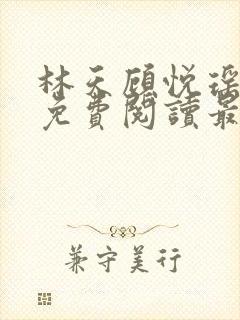 林天顧悅瑶
免費閱讀最
兼守美行